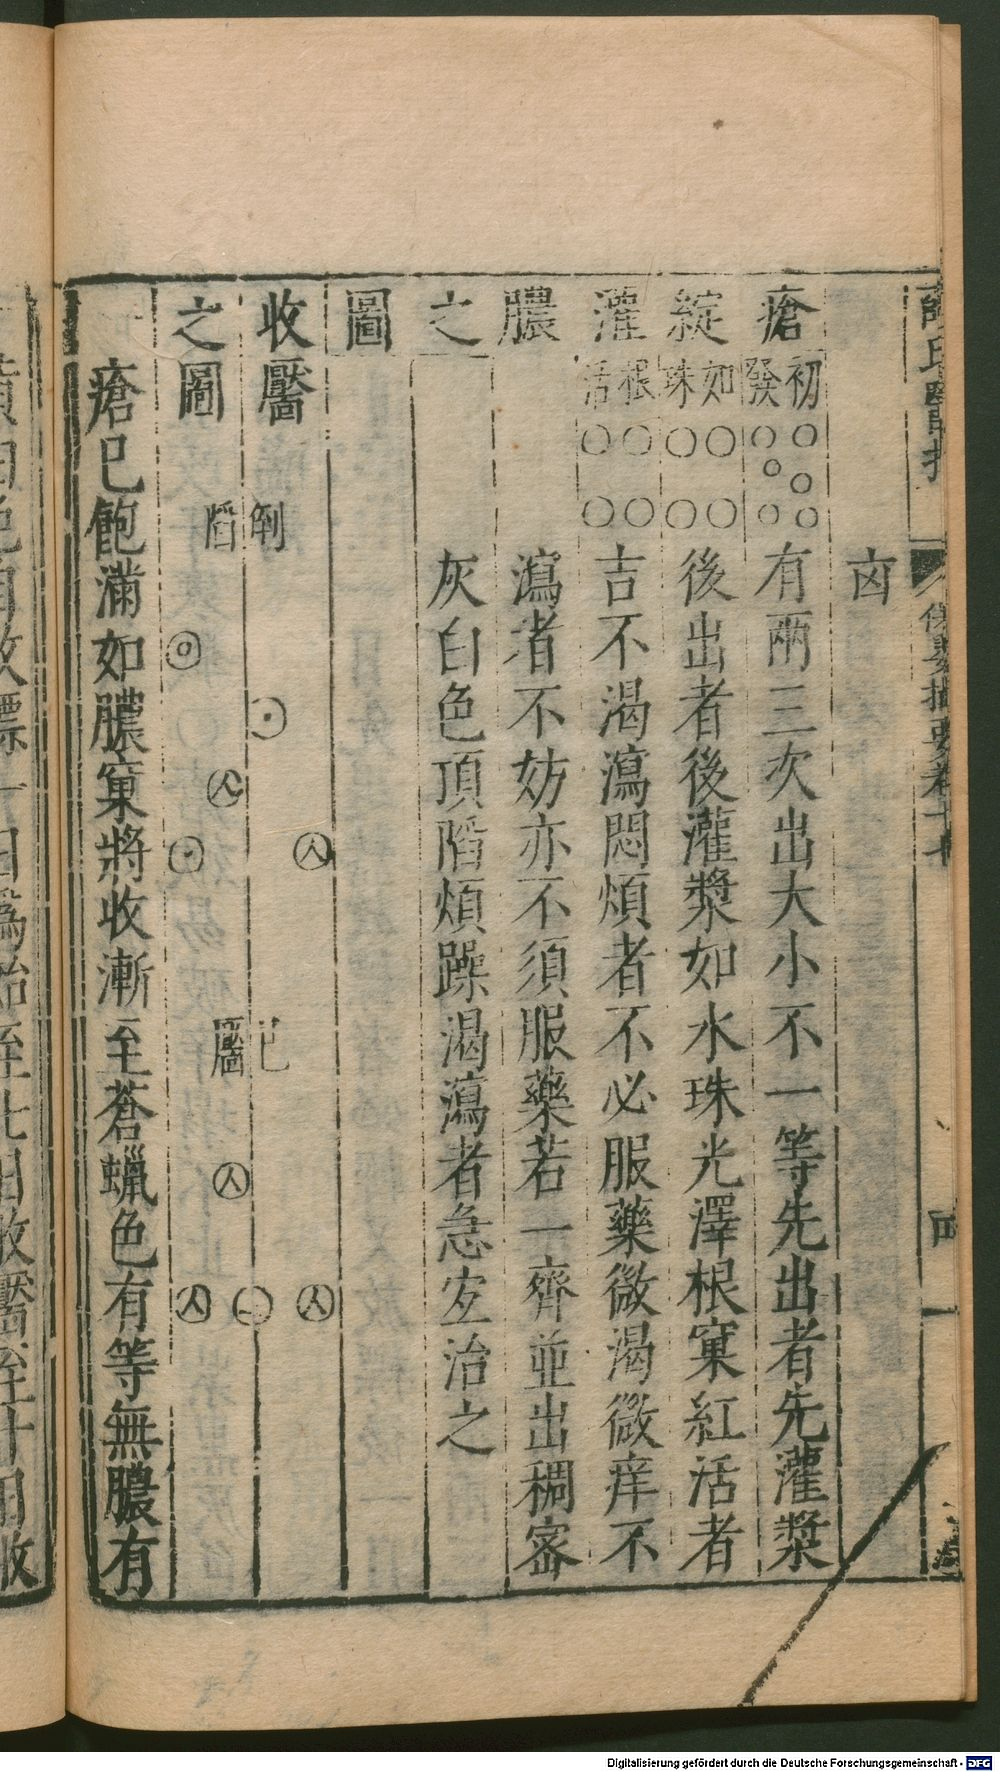 凶
瘡綻灌膿之圖
初發
如珠
根活
有兩三次出大小不一等先出者先灌漿
後出者後灌漿如水珠光澤根窠紅活者
吉不渴瀉悶煩者不必服藥微渴微痒不
瀉者不妨亦不須服藥若一齊並出稠宻
灰白色頂陷煩躁渴瀉者急宜治之
收靨
之圖
倒陷
已靨
人
人
人
人
人
瘡已飽滿如膿窠將收漸至蒼蠟色有等無膿有
保嬰撮要卷十七
Digitalisierung gefördert durch die Deutsche Forschungsgemeinschaft - DFG